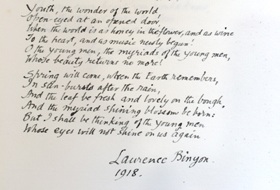 Youth, the wonder of the world,
Open-eyed at an opened door,
When the world is as honey in the flower, and as wine
To the heart, and as music newly begun!
O the young men, the myriads of the young men,
Whose beauty returns no more!
Spring will come, when the Earth remembers,
In sun-bursts after the rain,
And the leaf be fresh and lovely on the bough,
And the myriad shining blossom be born:
But I shall be thinking of the young men
Whose eyes will not shine on us again.
Laurence Binyon.
1918.